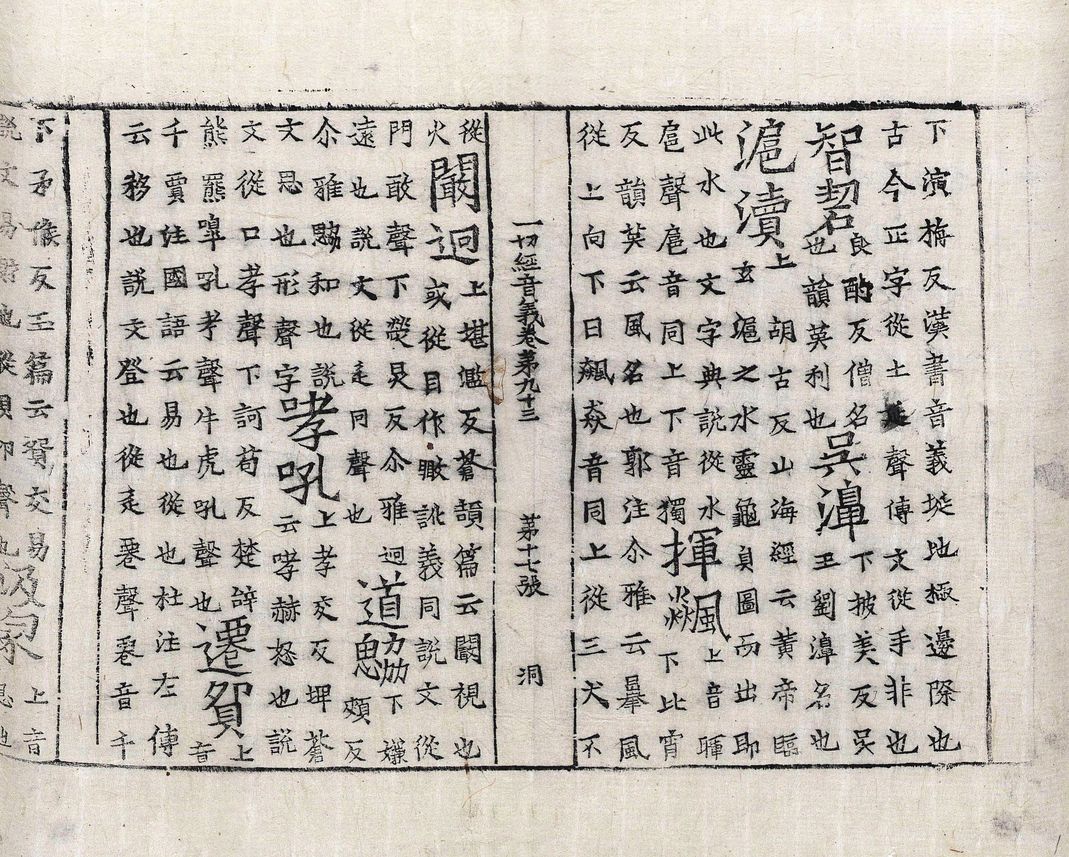 下演梅反漢書音義埏地極邊際也
古今正字從土聲傳文從手非也
智䂮良酌反僧名也韻英利也吳濞下披美反吳王劉濞名也
滬瀆上胡古反山海經云黃帝臨玄滬之水靈龜負圖而出即
此水也文字典說從水扈聲扈音同上下音獨揮飈上音暉下比宵
反韻英云風名也郭注尒雅云暴風
從上向下曰飆猋音同上從三犬不
一切經音義卷第九十三 第十七張 洞
從火闞迥上堪濫反蒼頡篇云闞視也或從目作瞰訓義同說文從
門敢聲下熒炅反尒雅迥
遠也說文從辵冋聲也道勰下嫌頰反
尒雅勰和也說文思也形聲字哮吼上孝交反埤蒼云哮赫怒也說
文從口孝聲下訶苟反楚辭
熊羆嗥吼考聲牛虎吼聲也遷貿上音
千賈注國語云易也從也杜注左傳
云移也說文登也從辵䙴聲䙴音千
下矛候反玉篇云貿交易
說文易財也從貝卯聲也象上音